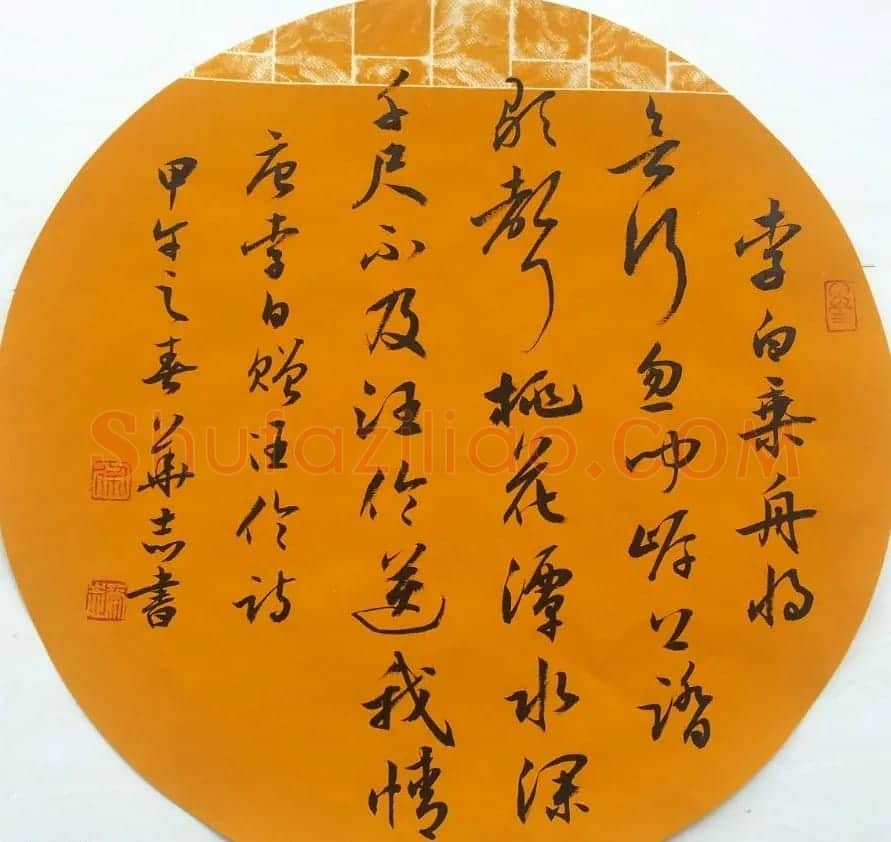 李白乘舟将
欲行忽闻岸上踏
歌聲桃花潭水深
千尺不及汪伦送我情
唐李白赠汪伦诗
甲午之春華志書
Shufaziliao.COM